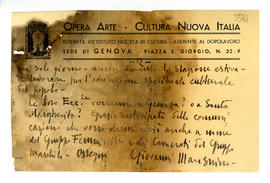 OPERA ARTE - CULTURA NUOVA ITALIA
FEDERATA ALL'ISTITUTO FASCISTA DI CULTURA - ADERENTE AL DOPOLAVORO
SEDE DI GENOVA - PIAZZA S. GIORGIO, N. 32-9
un solo giorno - anche durante la stagione estiva -
lavorare per l'educazione spirituale culturale
del popolo -
Le Sue Ecc. verranno a Genova? o a Santa
Margherita? Grazie anticipate delle comuni
cazioni che vorrà darmi così anche a nome
del Gruppo Femminile e dei Camerati del Gruppo
Maschile - Ossequi Giovanni